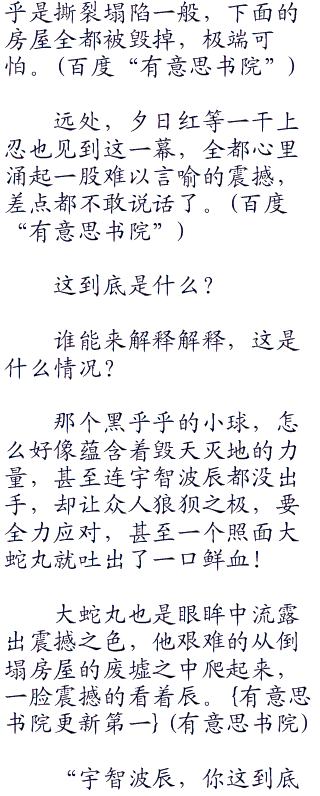 乎是撕裂塌陷一般，下面的
房屋全都被毁掉，极端可
怕。(百度“有意思书院”)
远处，夕日红等一干上
忍也见到这一幕，全都心里
涌起一股难以言喻的震撼，
差点都不敢说话了。(百度
“有意思书院”)
这到底是什么？
谁能来解释解释，这是
什么情况？
那个黑乎乎的小球，怎
么好像蕴含着毁天灭地的力
量，甚至连宇智波辰都没出
手，却让众人狼狈之极，要
全力应对，甚至一个照面大
蛇丸就吐出了一口鲜血！
大蛇丸也是眼眸中流露
出震撼之色，他艰难的从倒
塌房屋的废墟之中爬起来，
一脸震撼的看着辰。{有意思
书院更新第一}(有意思书院)
“宇智波辰，你这到底